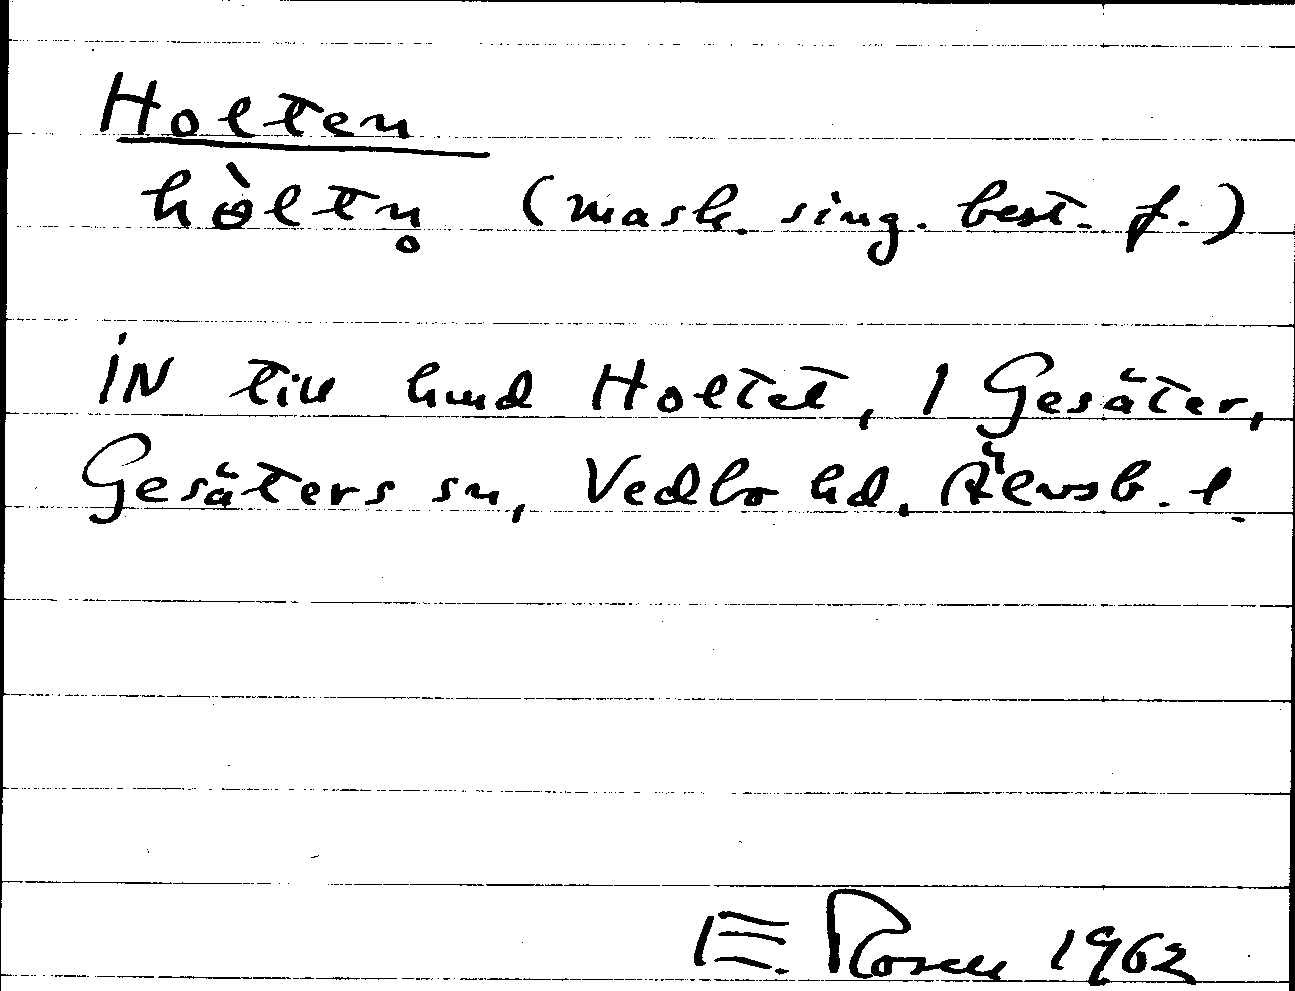 Holten
hòltn̥ (mask. sing. best. f.)
IN till hmd Holtet, 1 Gesäter,
Gesäters sn, Vedbo hd, Älvsb. l.
E. Rosell 1962